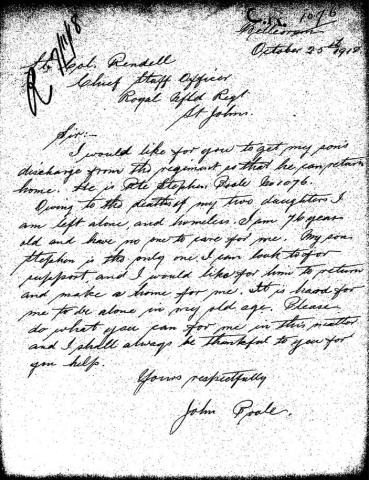 C.R. 1076
October 25th 1918
R 7/11/18
Lt. Col. Rendell
Chief Staff Officer
Royal Nfld Regt
St Johns.
Sir:-
I would like for you to get my son's
discharge from the regiment so that he can return
home. He is Pte Stephen Poole No 1076.
Owing to the deaths of my two daughters I
am left alone and homeless. I am 76 years
old and have no one to care for me. My son
Stephen is the only one I can look to for
support and I would like for him to return
and make a home for me. It is hard for
me to be alone in my old age. Please
do what you can for me in this matter
and I shall always be thankful to you for
you help.
Yours respectfully
John Poole.